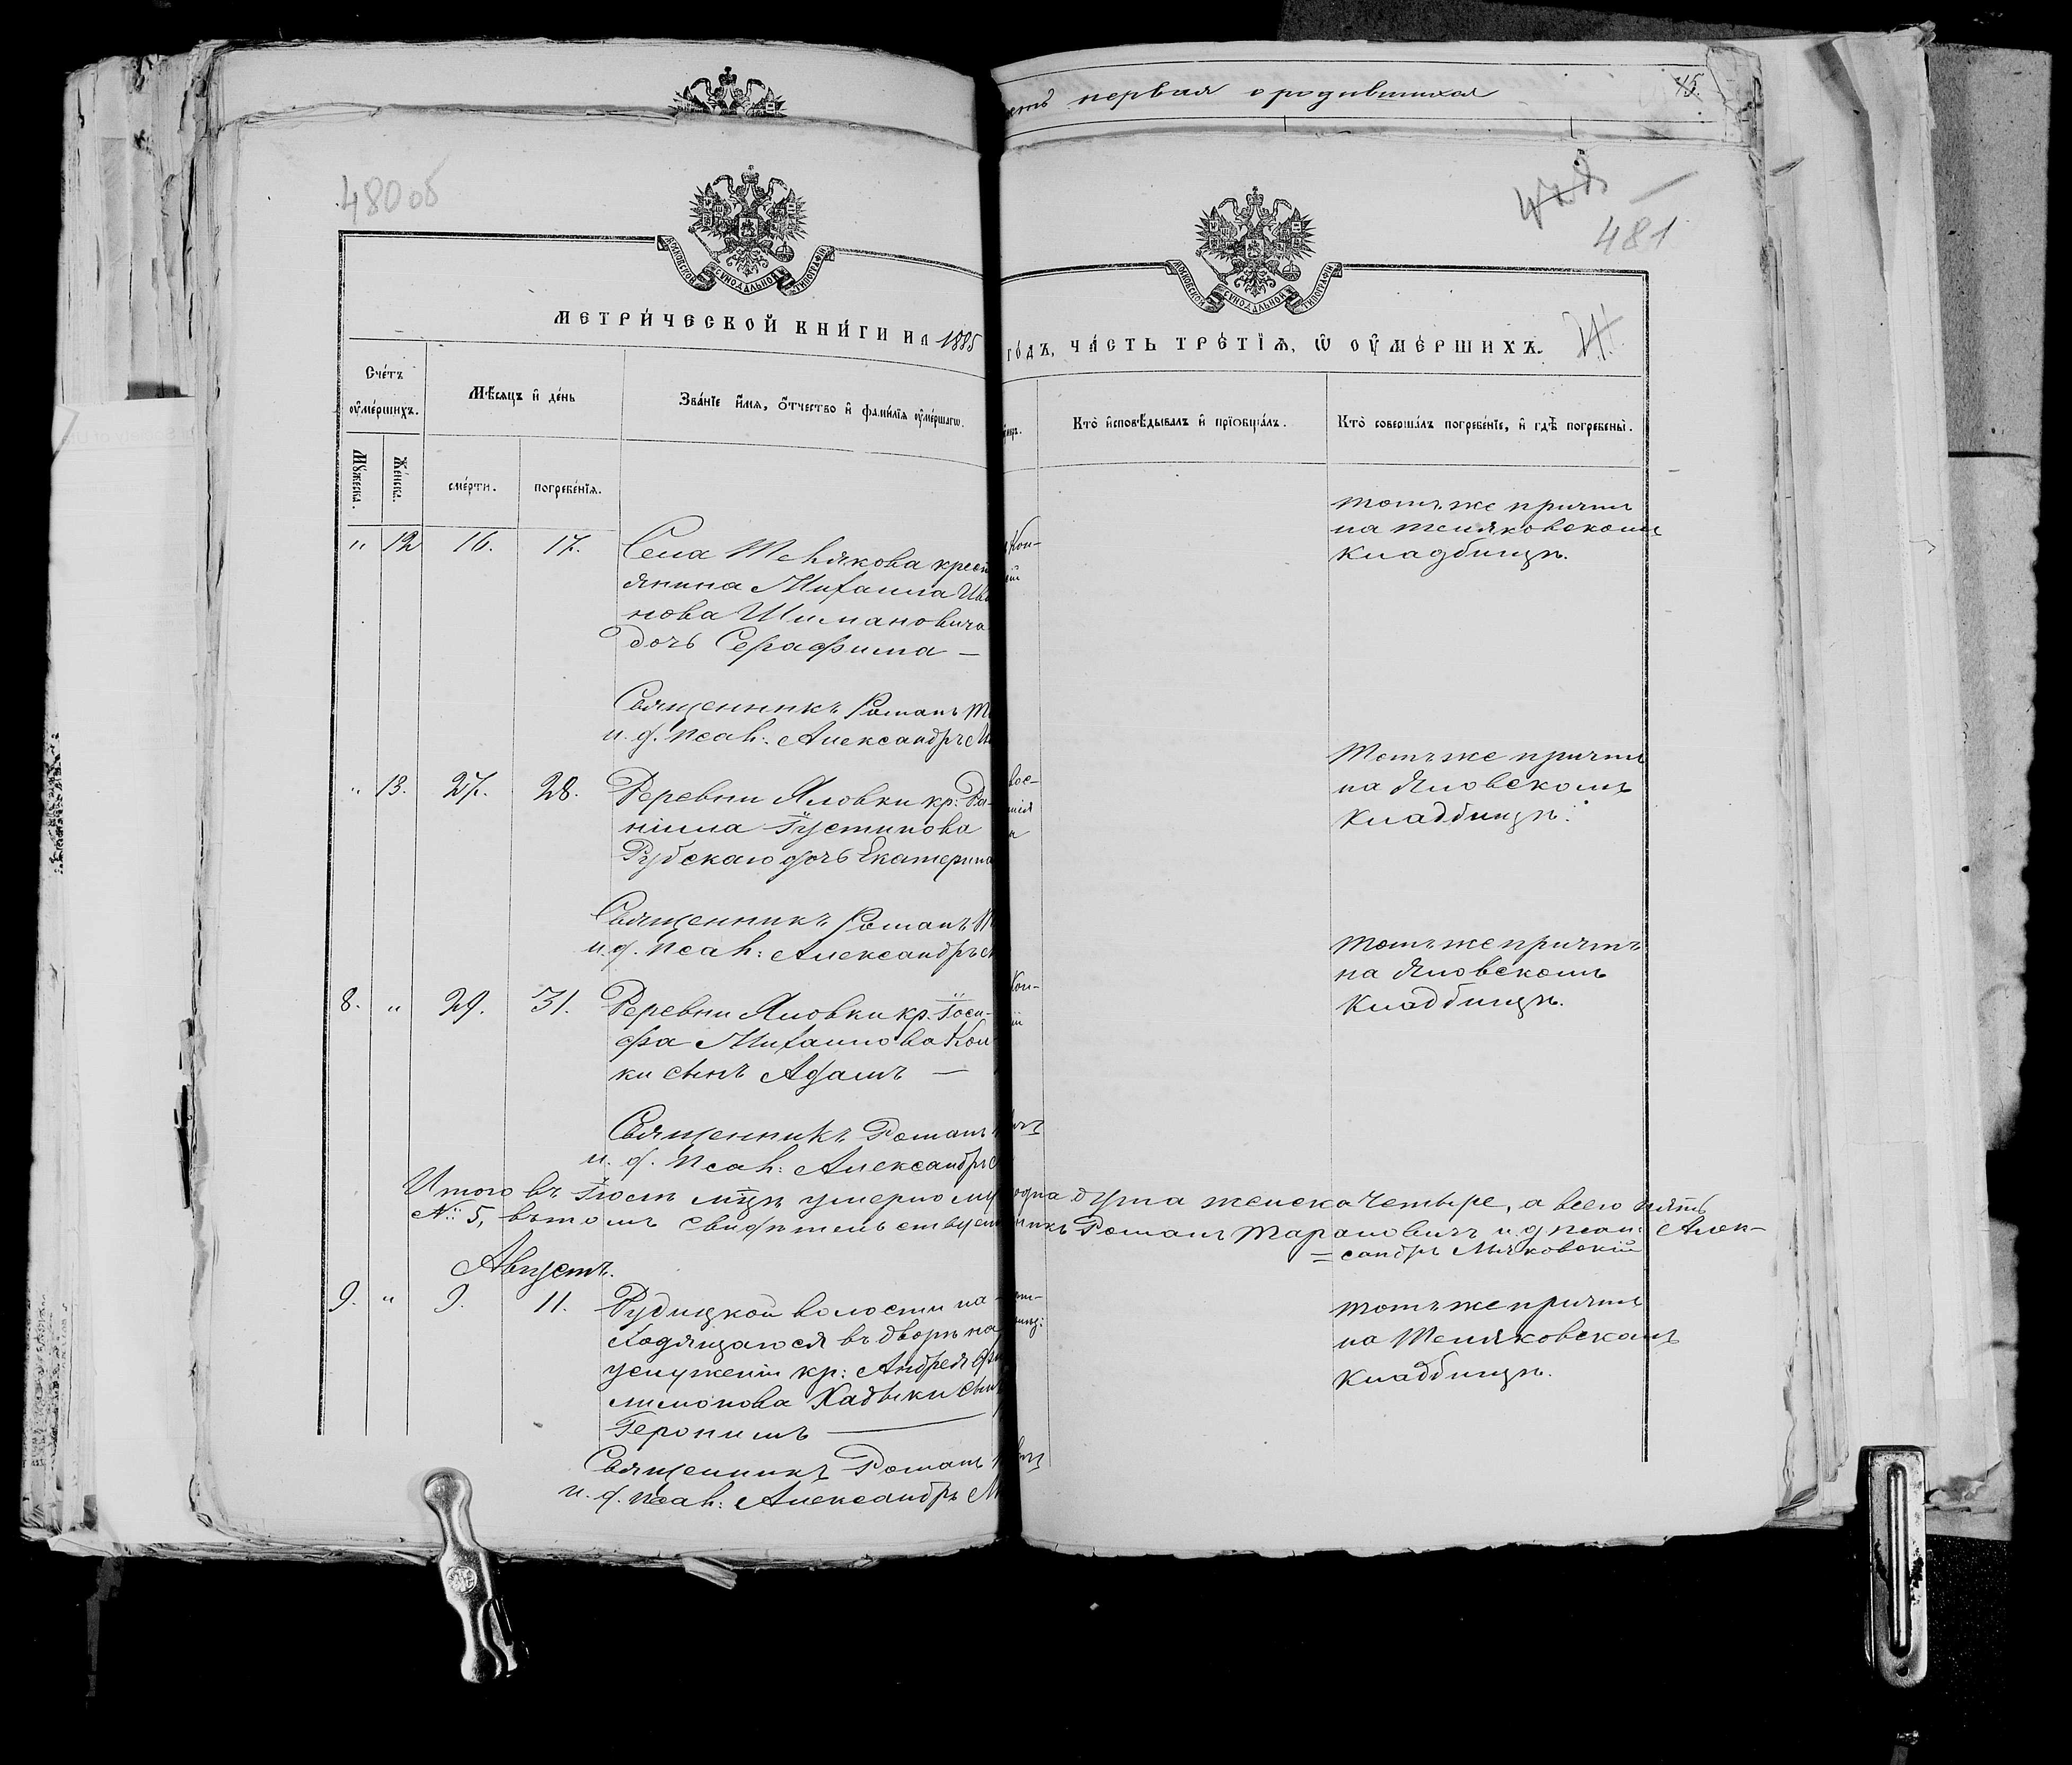 сть первая о родившихся
45.
480об
481
МОСКОВСКОЙ СѴНОДАЛЬНОЙ ТИПОГРАФІИ
МОСКОВСКОЙ СѴНОДАЛЬНОЙ ТИПОГРАФІИ
МЕТРИ́ЧЕСКОЙ КНИ́ГИ НА 1885
ГО́ДЪ, ЧА́СТЬ ТРЕ́ТІѦ, Ѽ ОУМЕ́РШИХЪ.
Сче́тъ оуме́ршихъ.
Мѣ́сяцъ и де́нь
Зва́нїе и́мя, о́тчество и фами́лїя оуме́ршагѡ.
Кто̀ исповѣ́дывалъ и прїѡбща́лъ.
Кто̀ соверша́лъ погребе́нїе, и гдѣ̀ погребены̀.
Мꙋ́жеска.
Же́нска.
сме́рти.
погребе́нїя.
" 12 16. 17. Села Телякова крест
янина Михаила Ива
нова Шимановича
дочь Серафима —
Священникъ Романъ
и. д. псал: Александръ
тотъ же причтъ
на Теляковскомъ
Кладбищѣ.
" 13. 27. 28. Деревни Яловки кр: Да-
ніила Іустинова
Рубскаго дочь Екатерина
Священникъ Романъ
и. д. псал: Александръ
Тотъ же причтъ
на Яловскомъ
Кладбищѣ.
8. " 29. 31. Деревни Яловки кр. Іоси-
фа Михаилова Кон
ки сынъ Адамъ —
Священникъ Романъ
и. д. псал: Александръ
тотъ же причтъ
на Яловскомъ
Кладбищѣ.
Итого въ Іюлѣ мцѣ умерло му одна душа женска четыре, а всего пять
№ 5, въ томъ свидѣтельствуем никъ Романъ Тарановичъ и. д. псал: Алек-
= сандръ Мычковскій
Августъ.
9. " 9. 11. Рудицкой волости на-
ходящагося въ дворѣ на
услуженіи кр: Андрея Фи
лимонова Хадыки сынъ
Іеронимъ —
Священникъ Романъ
и. д. псал: Александръ
тотъ же причтъ
на Теляковскомъ
Кладбищѣ.